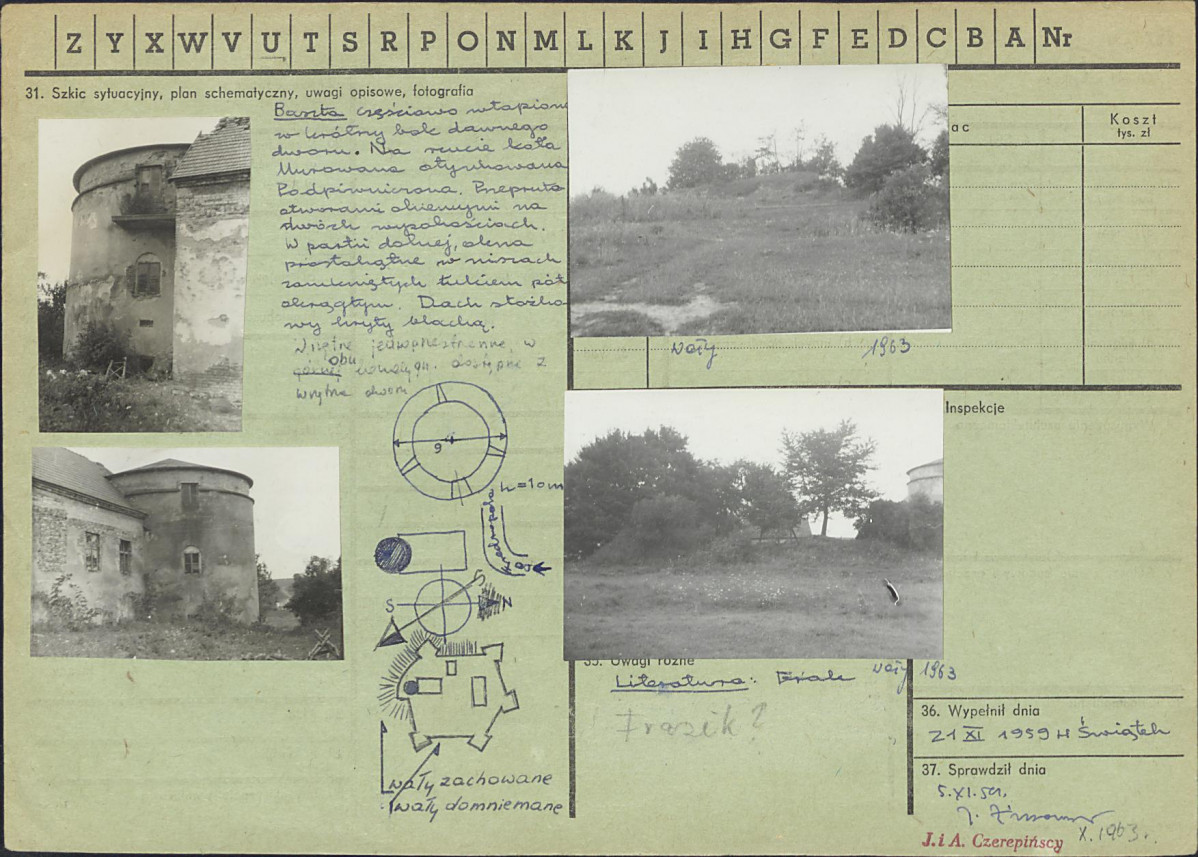 Z Y X W V U T S R P O N M L K J I H G F E D C B A Nr
31. Szkic sytuacyjny, plan schematyczny, uwagi opisowe, fotografia
Baszta częściowo wtapiona
w krótny bok dawnego
dworu. Na rzucie koła
Murowana otynkowana
Podpiwniczona. Rzepruta
otworami okiennymi na
dwóch wysokościach.
W partii dolnej, okna
prostokątne w niszach
zamkniętych łukiem pół
okrągłym. Dach stożko
wy kryty blachą.
Wnętrze jednoprzestrzenne, w
obu
dostępne z
wnętrza dworu
9
h=10m
S
S
N
wały zachowane
wały domniemane
ac
Koszt
tys. zł
Wały 1963
Inspekcje
35. Uwagi różne
Literatura:
Wały 1963
Frazik?
36. Wypełnił dnia
21 XI 1959 H Świątek
37. Sprawdził dnia
5.XI.59.
X.1963.
J. i A. Czerepińscy